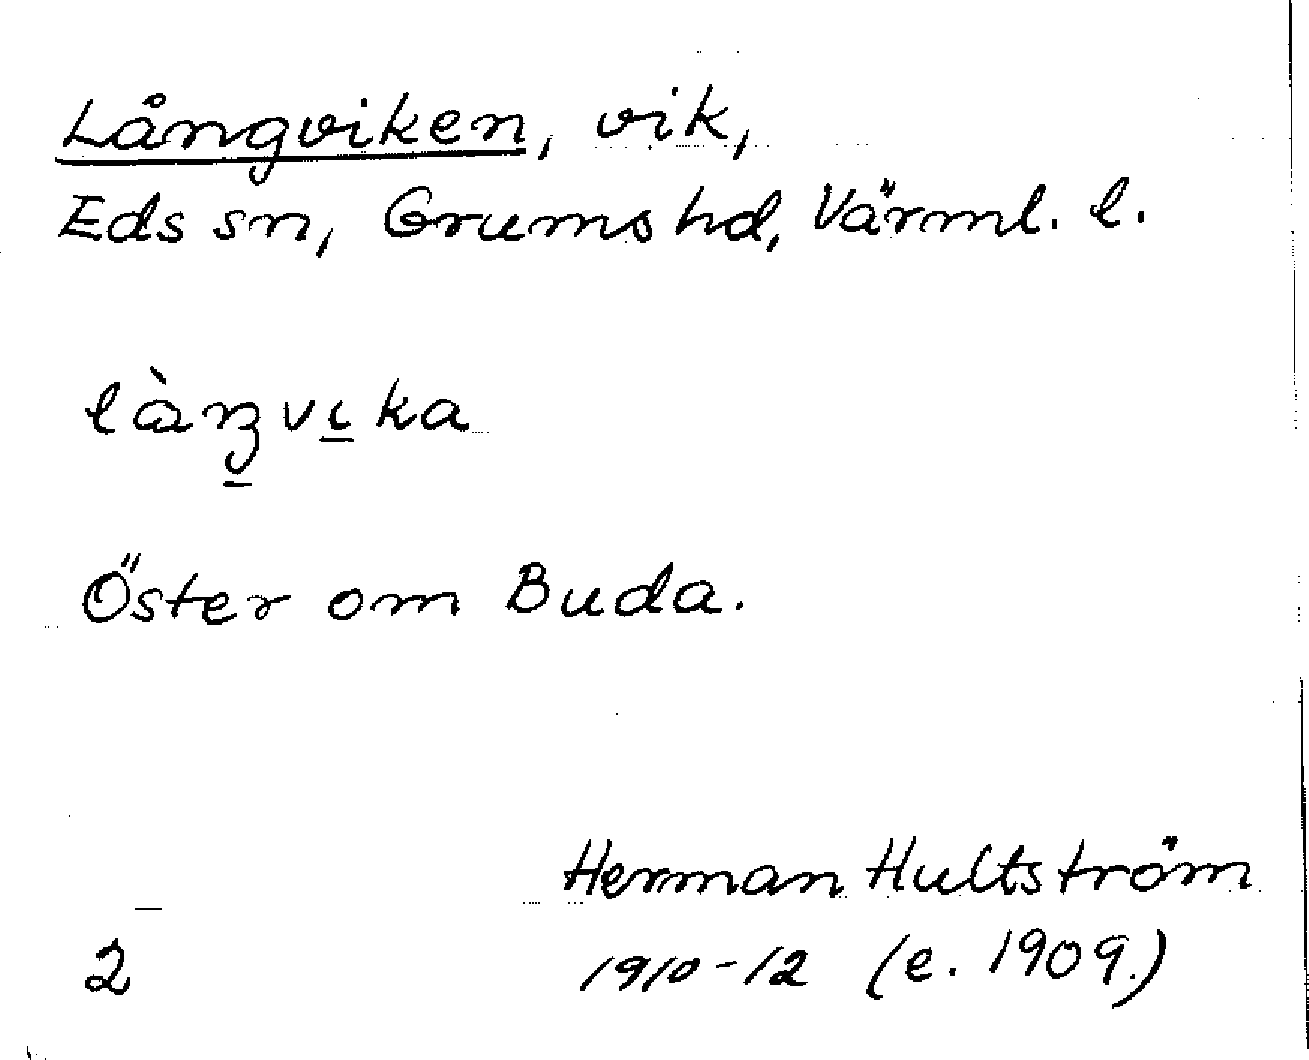 Långviken, vik,
Eds sn, Grums hd, Värml. l.
làŋvıka
Öster om Buda.
Herman Hultström
2 1910-12 (e. 1909.)